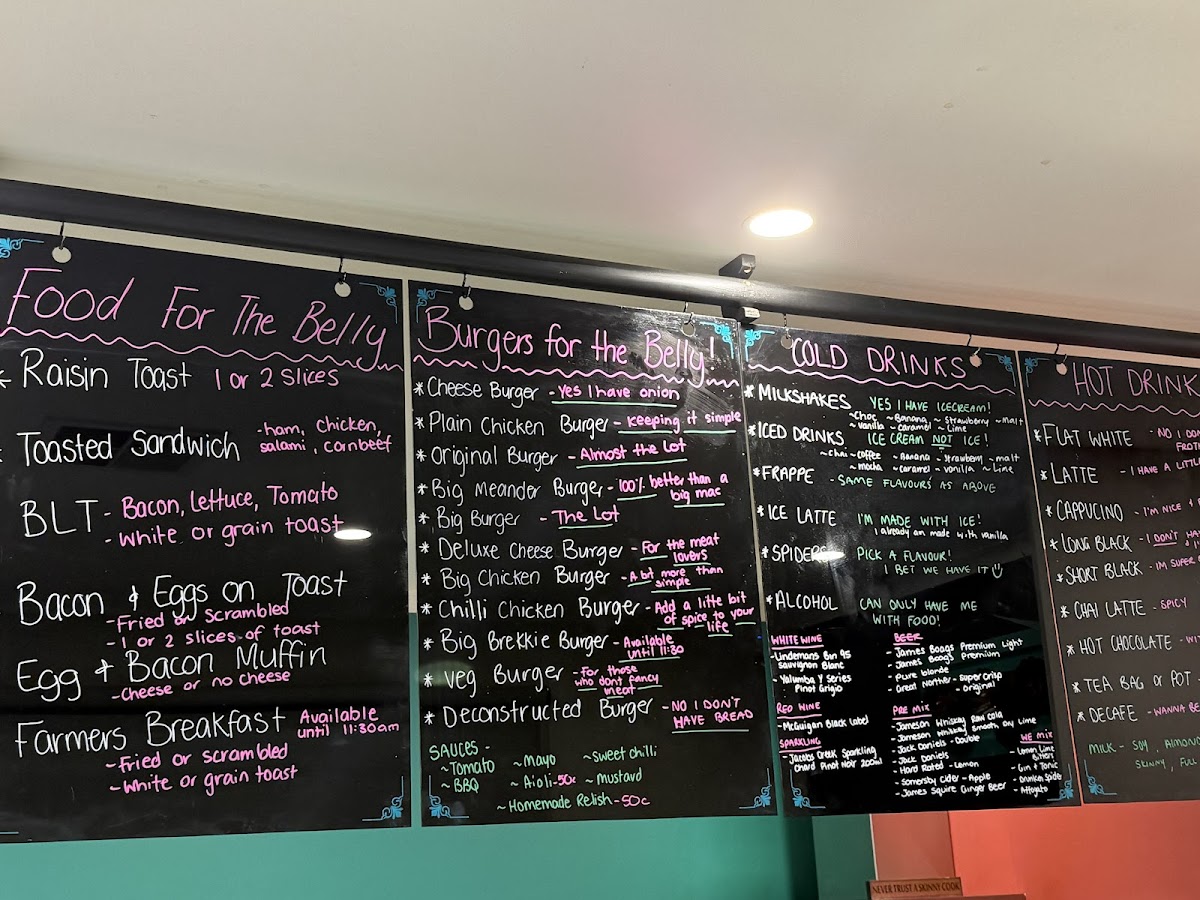 Food For The Belly
* Raisin Toast 1 or 2 slices
Toasted Sandwich -ham, chicken,
salami, cornbeef
BLT - Bacon, lettuce, Tomato
- White or grain toast
Bacon & Eggs on Toast
- Fried or Scrambled
- 1 or 2 slices of toast
Egg & Bacon Muffin
- cheese or no cheese
Farmers Breakfast Available
until 11:30am
- Fried or scrambled
- White or grain toast
Burgers for the Belly!
* Cheese Burger - Yes I have onion
* Plain Chicken Burger - keeping it simple
* Original Burger - Almost the Lot
* Big Meander Burger - 100% better than a
big mac
* Big Burger - The Lot
* Deluxe Cheese Burger - For the meat
lovers
* Big Chicken Burger - A bit more than
simple
* Chilli Chicken Burger - Add a litte bit
of spice to your
life
* Big Brekkie Burger - Available
until 11:30
* Veg Burger - For those
who dont fancy
meat
* Deconstructed Burger - NO I DON'T
HAVE BREAD
SAUCES -
~Tomato ~Mayo ~sweet chilli
~BBQ ~Aioli-50c ~mustard
~Homemade Relish-50c
COLD DRINKS
* MILKSHAKES YES I HAVE ICECREAM!
~Choc ~Banana ~Strawberry ~malt
~vanilla ~caramel ~Lime
* ICED DRINKS ICE CREAM NOT ICE!
~chai ~coffee ~Banana ~Strawberry ~malt
~mocha ~caramel ~vanilla ~Lime
* FRAPPE - SAME FLAVOURS AS ABOVE
* ICE LATTE I'M MADE WITH ICE!
I already am made with vanilla
* SPIDERS PICK A FLAVOUR!
I BET WE HAVE IT
* ALCOHOL CAN ONLY HAVE ME
WITH FOOD!
WHITE WINE
- Lindemans Bin 95
Sauvignon Blanc
- Yalumba Y Series
Pinot Grigio
RED WINE
- McGuigan Black Label
SPARKLING
- Jacobs Creek Sparkling
Chard Pinot Noir 200ml
BEER
- James Boags Premium Light
- James Boags Premium
- Pure blonde
- Great Northern - Super crisp
- original
PRE MIX
- Jameson Whiskey Raw Cola
- Jameson Whiskey Smooth Dry Lime
- Jack Daniels - Double
- Jack Daniels
- Hard Rated - Lemon
- Somersby Cider - Apple
- James Squire Ginger Beer
WE MIX
- Lemon Lime
Bitters
- Gin & Tonic
- Drunken Spider
- Affogato
HOT DRINK
* FLAT WHITE - NO I DON
FROTH
* LATTE - I HAVE A LITTLE
* CAPPUCINO - I'M NICE
* LONG BLACK - I DON'T HA
* SHORT BLACK - IM SUPER
* CHAI LATTE - SPICY
* HOT CHOCOLATE -
* TEA BAG OR POT -
* DECAFE - WANNA BE
MILK - SOY, ALMOND
SKINNY, FULL
NEVER TRUST A SKINNY COOK